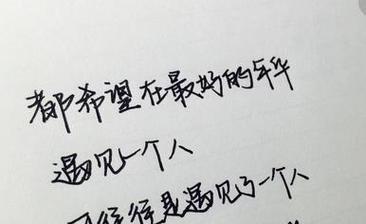 都希望在最好的年华
遇见一个人
可往往是遇见了一个人